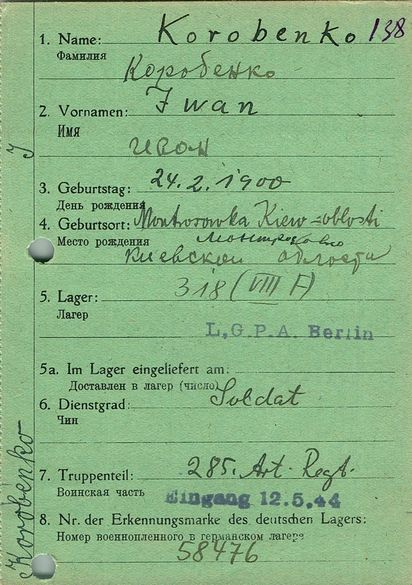 138
1. Name: Korobenko
Фамилия
Коробенко
2. Vornamen: Iwan
Имя
Иван
3. Geburtstag: 24.2.1900
День рождения
4. Geburtsort: Montrosowka Kiew=oblosti
Место рождения
Киевской области
5. Lager: 318 (VIII F)
Лагер
L.G.P.A. Berlin
5a. Im Lager eingeliefert am:
Доставлен в лагер (число)
6. Dienstgrad: Soldat
Чин
7. Truppenteil: 285. Art. Regt.
Воинская часть
Eingang 12.5.44
8. Nr. der Erkennungsmarke des deutschen Lagers:
Номер военнопленного в германском лагере
58476
Korobenko
J